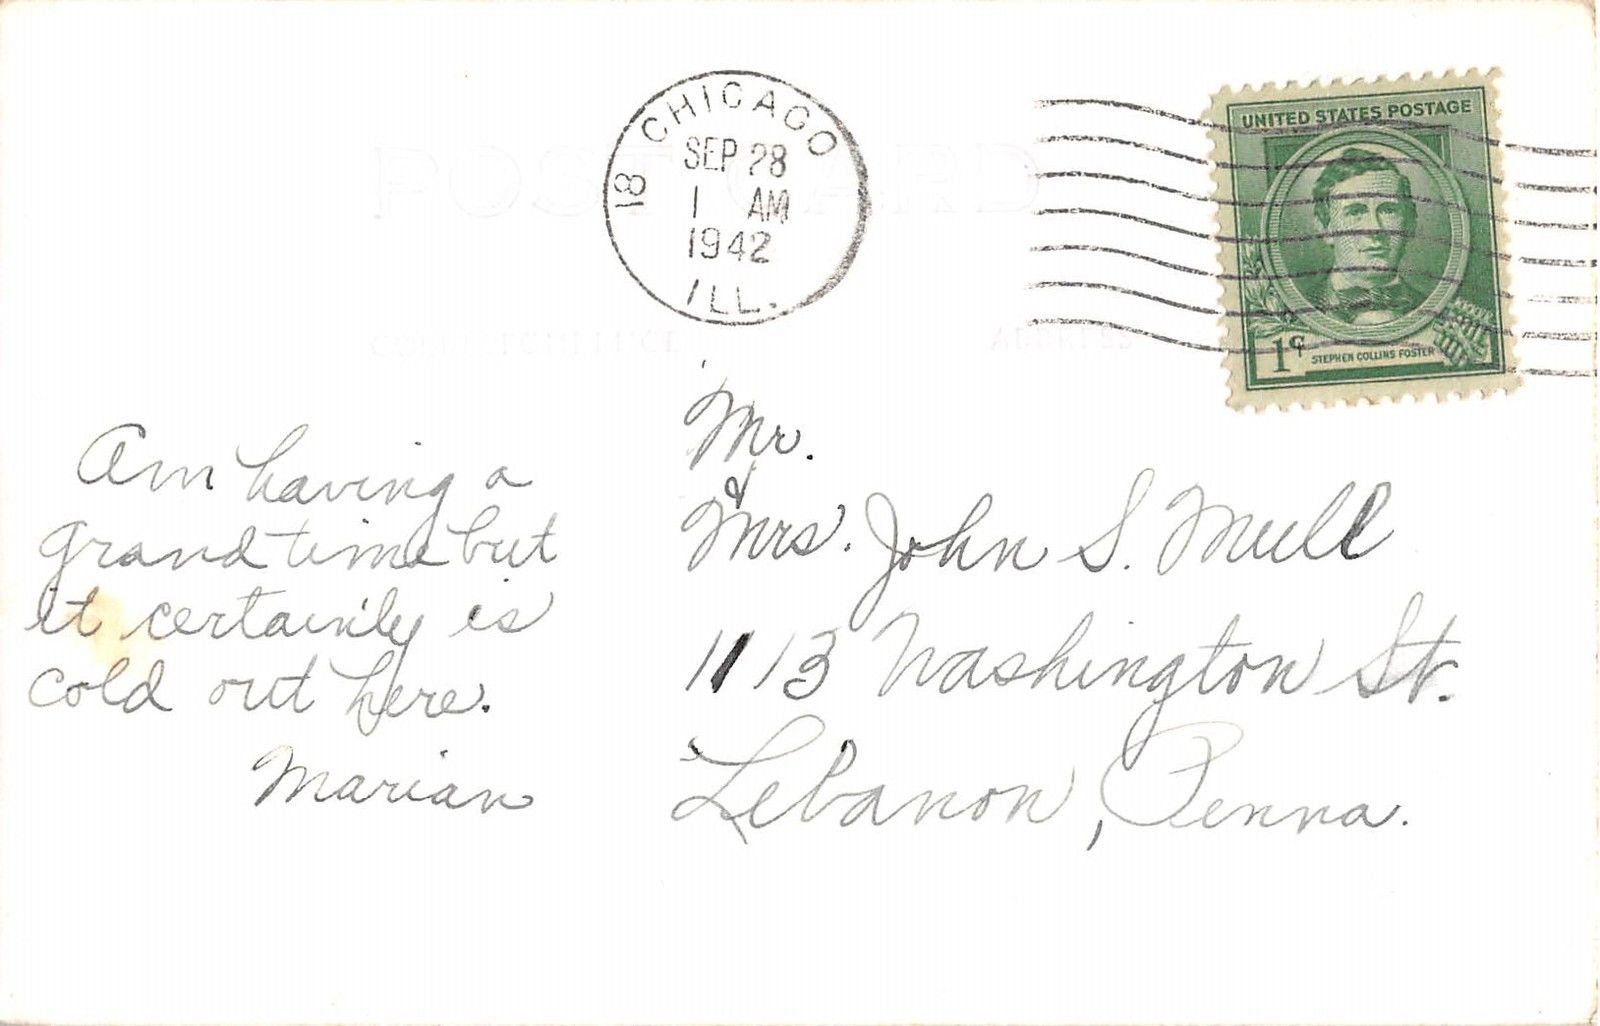 POST CARD
CHICAGO
18
SEP 28
1 AM
1942
ILL.
UNITED STATES POSTAGE
1¢
STEPHEN COLLINS FOSTER
CORRESPONDENCE
ADDRESS
Am having a
grand time but
it certainly is
cold out here.
Marian
Mr.
&
Mrs. John S. Mull
1113 Washington St.
Lebanon, Penna.